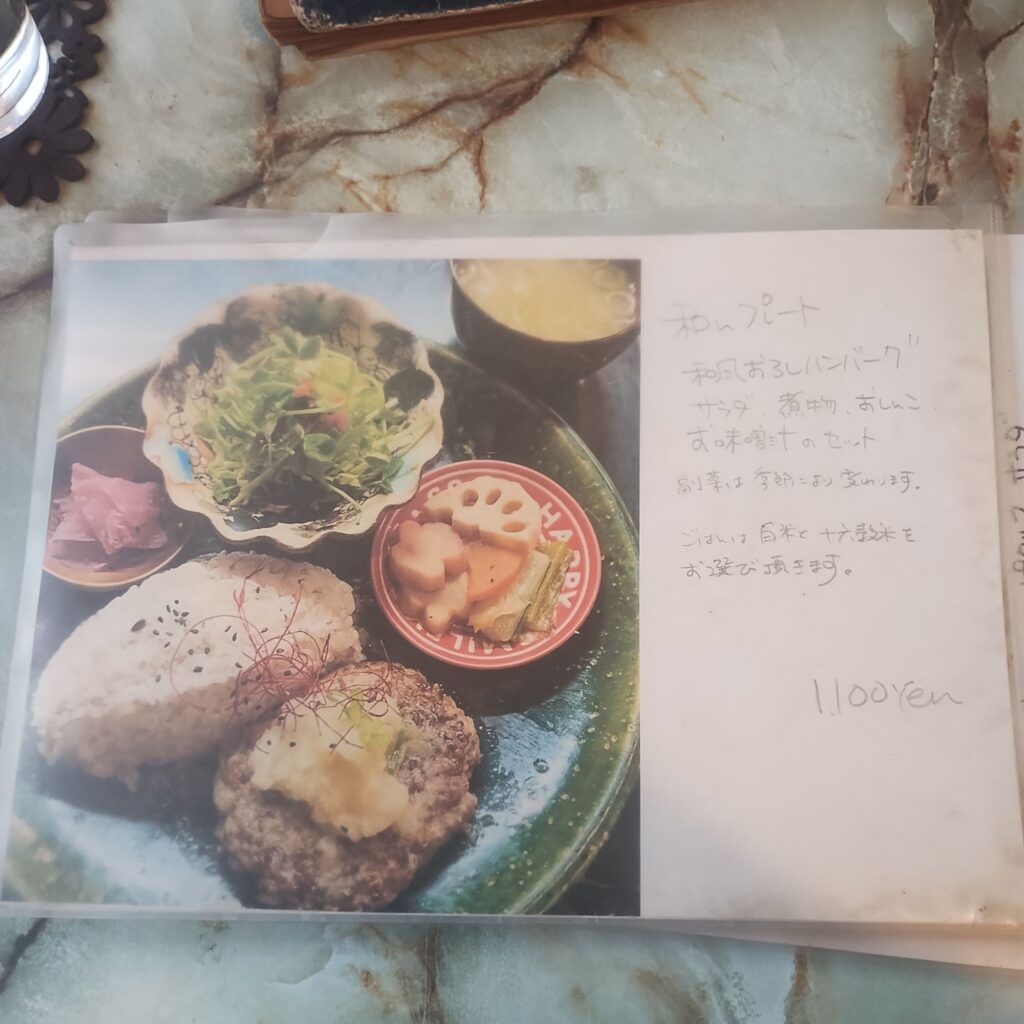 和ンプレート
和風おろしハンバーグ
サラダ、煮物、おしんこ
お味噌汁のセット
副菜は季節により変わります。
ごはんは白米と十六穀米を
お選び頂きます。
1,100Yen
HAPPY